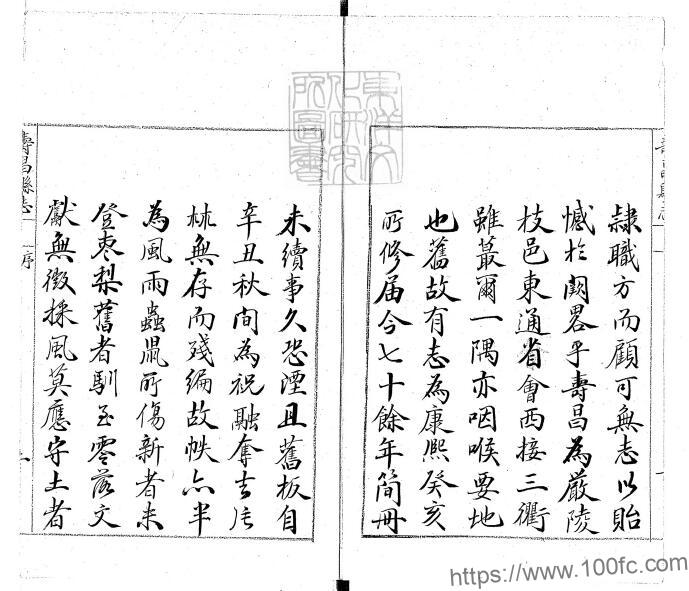 隸職方而顧可無志以貽
憾於闕畧乎壽昌為嚴陵
枝邑東通省會西接三衢
雖蕞爾一隅亦咽喉要地
也舊故有志為康熙癸亥
所修届今七十餘年簡冊
未續事久恐湮且舊板自
辛丑秋間為祝融奪去片
林無存而殘編故帙亦半
為風雨蟲鼠所傷新者未
登棗梨舊者馴至零落文
獻無徵採風莫應守土者
壽昌縣志
序
東洋文
化研究
所圖書
https://www.100fc.com